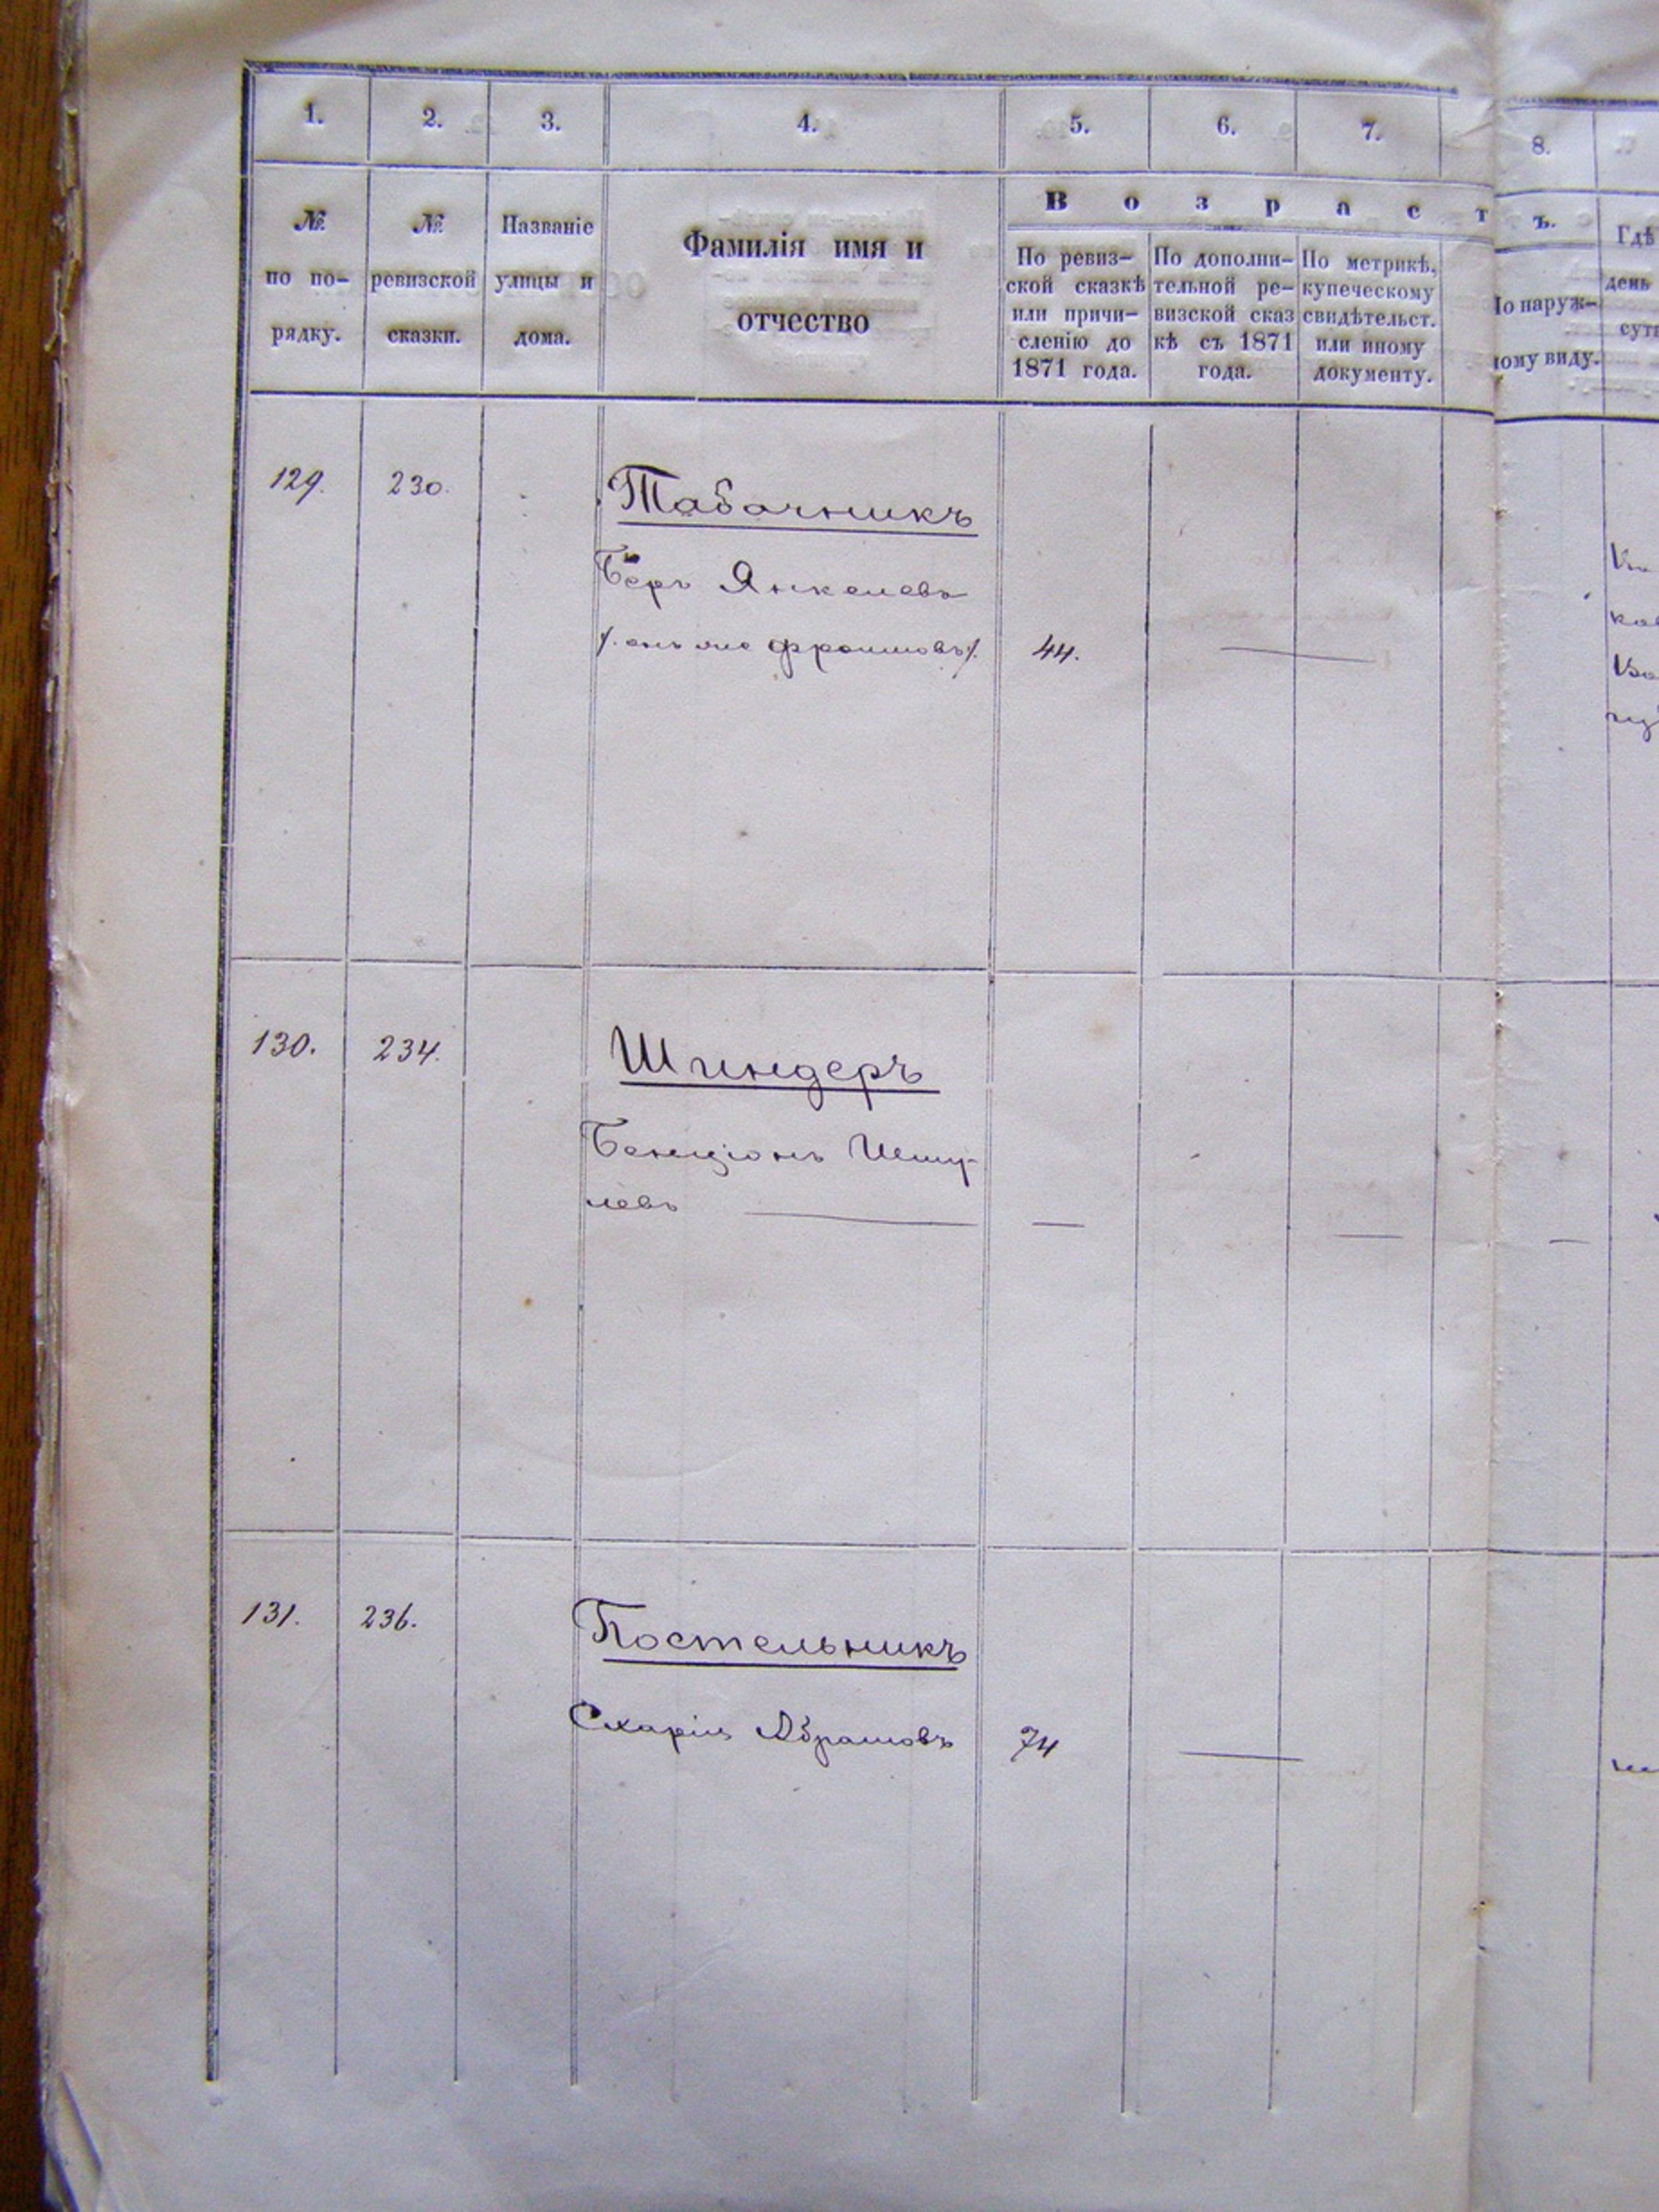 1. 2. 3. 4. 5. 6. 7. 8.
№ по по-рядку.
№ ревизской сказки.
Названіе улицы и дома.
Фамилія имя и отчество
Возраст ъ.
По ревиз-
ской сказкѣ
или причи-
сленію до
1871 года.
По дополни-
тельной ре-
визской сказ
кѣ съ 1871
года.
По метрикѣ,
купеческому
свидѣтельст.
или иному
документу.
о наруж-
ному виду.
Гдѣ
день
сут
129. 230. Табачникъ
Беръ Янкелевъ
/. онъ же Фроимовъ /. 44.
130. 234. Шиндеръ
Бенціонъ Шму-
левъ
131. 236. Постельникъ
Схарія Абрамовъ 74